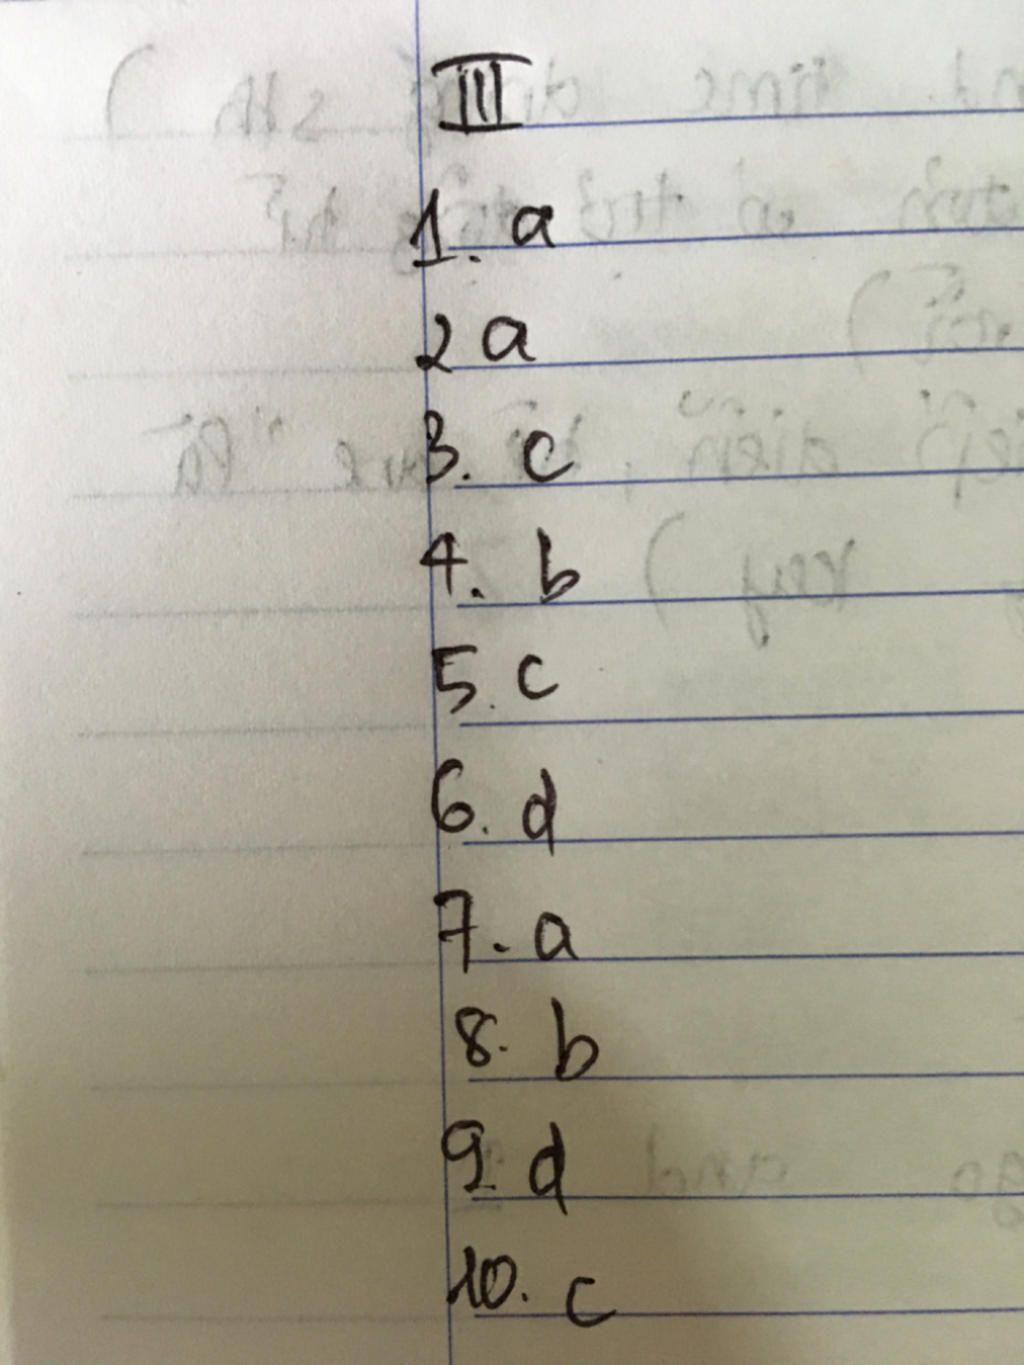 III
1. a
2 a
3. c
4. b
5. c
6. d
7. a
8. b
9 d
10. c